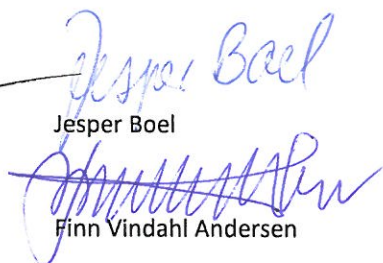 Jesper Boel
Jesper Boel
Finn Vindahl Andersen